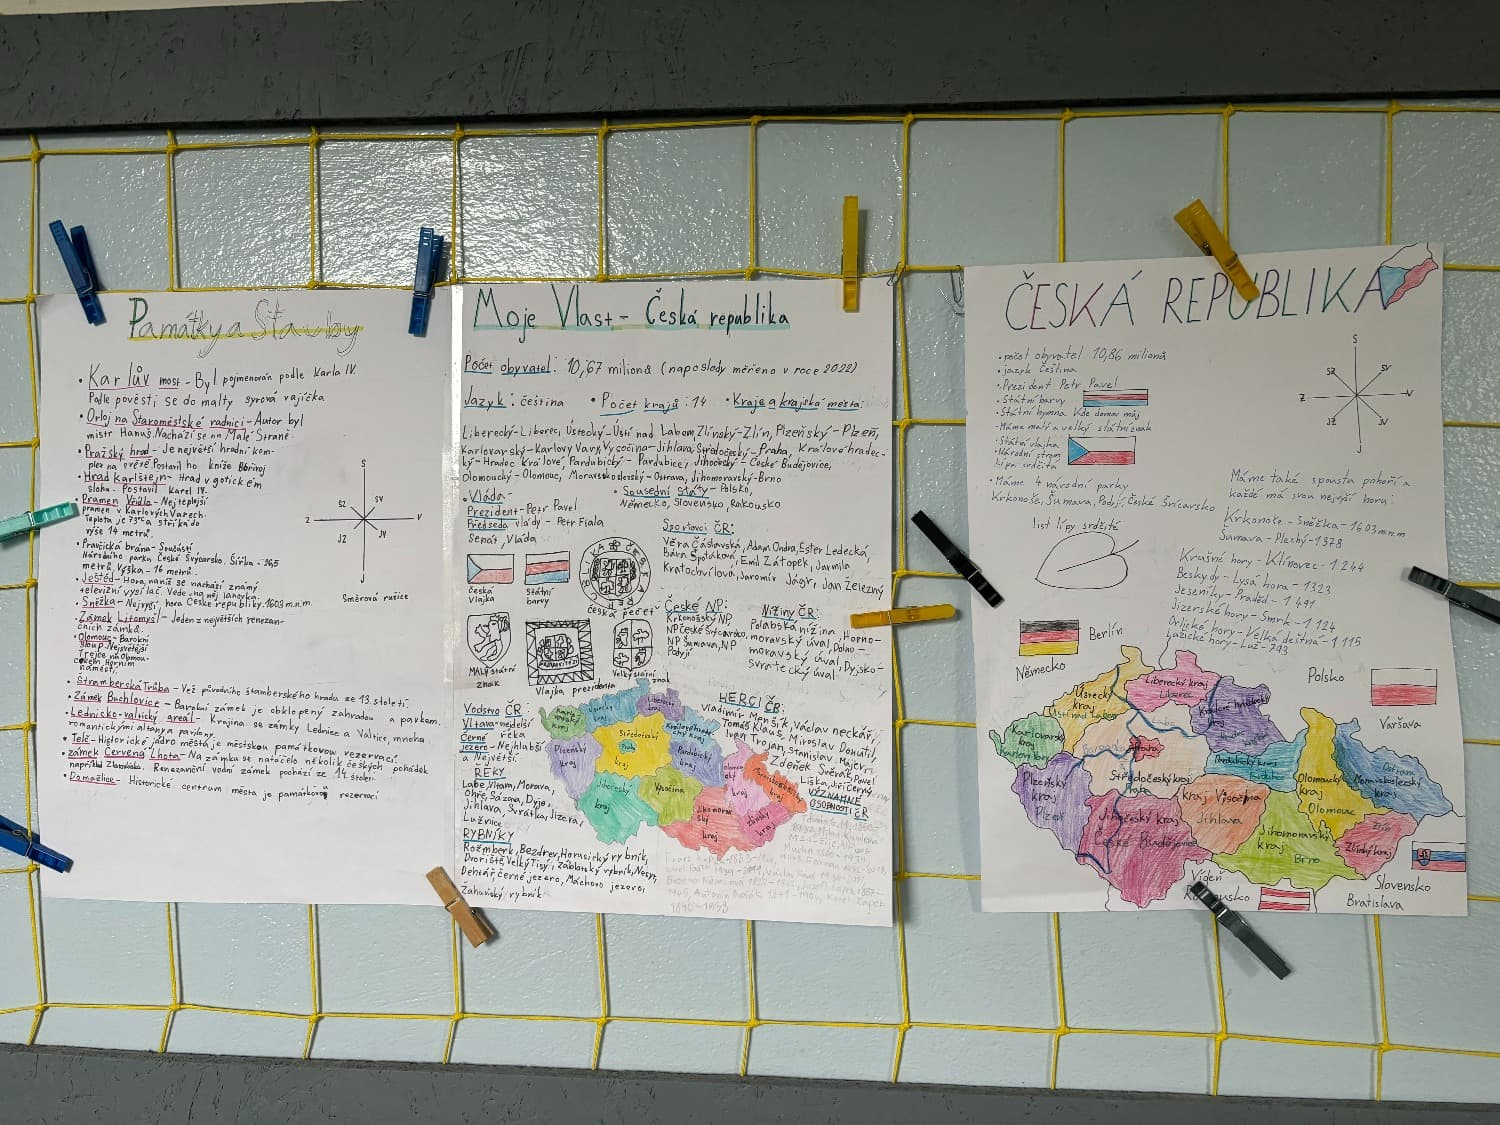 Památky a Stavby
• Karlův most - Byl pojmenován podle Karla IV.
Podle pověsti se do malty syrová vajíčka
• Orloj na Staroměstské radnici - Autor byl
mistr Hanuš. Nachází se na Malé Straně.
• Pražský hrad - Je největší hradní kom-
plex na světě. Postavil ho kníže Bořivoj
• Hrad Karlštejn - Hrad v gotickém
slohu. Postavil Karel IV.
• Pramen Vřídla - Nejteplejší
pramen v Karlových Varech.
Teplota je 73°C a stříká do
výše 14 metrů.
• Pravčická brána - Součástí
Národního parku České Švýcarsko. Šířka - 26,5
metrů, Výška - 16 metrů.
• Ještěd - Hora, na níž se nachází známý
televizní vysílač. Vede na něj lanovka.
• Sněžka - Nejvyšší hora České republiky. 1603 m.n.m.
• Zámek Litomyšl - Jeden z největších renezan-
čních zámků.
• Olomouc - Barokní
sloup Nejsvětější
Trojce na Olomou-
ckém Horním
náměstí.
• Štramberská Trúba - Věž původního štramberského hradu ze 13. století.
• Zámek Buchlovice - Barokní zámek je obklopený zahradou a parkem.
• Lednicko-valtický areál - Krajina se zámky Lednice a Valtice, mnoha
romantickými altány a pavilony.
• Telč - Historické jádro města je městskou památkovou rezervací.
• zámek Červená Lhota - Na zámku se natáčelo několik českých pohádek
například Zlatovláska. Renezanční vodní zámek pochází ze 14. století.
• Domažlice - Historické centrum města je památkovou rezervací
S
SZ SV
Z V
JZ JV
J
Směrová růžice
Moje Vlast - Česká republika
Počet obyvatel: 10,67 milionů (naposledy měřeno v roce 2022)
Jazyk: čeština • Počet krajů: 14 • Kraje a krajská města:
Liberecký-Liberec, Ústecký-Ústí nad Labem, Zlínský-Zlín, Plzeňský-Plzeň,
Karlovarský-Karlovy Vary, Vysočina-Jihlava, Středočeský-Praha, Královéhradec-
ký-Hradec Králové, Pardubický-Pardubice, Jihočeský-České Budějovice,
Olomoucký-Olomouc, Moravskoslezský-Ostrava, Jihomoravský-Brno
• Vláda-
Prezident-Petr Pavel
Předseda vlády - Petr Fiala
Senát, Vláda
• Sousední státy-Polsko,
Německo, Slovensko, Rakousko
Sportovci ČR:
Věra Čáslavská, Adam Ondra, Ester Ledecká,
Bára Špotáková, Emil Zátopek, Jarmila
Kratochvílová, Jaromír Jágr, Jan Železný
Česká
vlajka
Státní
barvy
Česká pečeť
Malý státní
znak
Vlajka prezidenta
Velký státní
znak
České NP:
Krkonošský NP,
NP České Švýcarsko,
NP Šumava, NP
Podyjí
Nížiny ČR:
Polabská nížina, Horno-
moravský úval, Dolno-
moravský úval, Dyjsko-
svratecký úval
Vodstvo ČR:
Vltava-nejdelší
řeka
Černé
jezero-Nejhlubší
a Největší.
ŘEKY
Labe, Vltava, Morava,
Ohře, Sázava, Dyje,
Jihlava, Svratka, Jizera,
Lužnice
RYBNÍKY
Rožmberk, Bezdrev, Horusický rybník,
Dvořiště, Velký Tisý, Záblatský rybník, Nesyt,
Dehtář, černé jezero, Máchovo jezero,
Žehuňský rybník
HERCI ČR:
Vladimír Menšík, Václav neckář,
Tomáš Klaus, Miroslav Donutil,
Ivan Trojan, Stanislav Majer,
Zdeněk Svěrák, Pavel
Liška, Jiří Černý
VÝZNAMNÉ
OSOBNOSTI ČR
Karlovarský
kraj
Ústecký
kraj
Liberecký
kraj
Královéhradecký
kraj
Plzeňský
kraj
Středočeský
Praha
kraj
Pardubický
kraj
Jihočeský
kraj
Vysočina
Jihomoravský
kraj
Zlínský
kraj
ČESKÁ REPUBLIKA
• počet obyvatel 10,86 milionů
• jazyk čeština
• Prezident Petr Pavel
• Státní barvy
• Státní hymna Kde domov můj
• Máme malý a velký státní znak
• Státní vlajka
• Národní strom
Lípa srdčitá
• Máme 4 národní parky
Krkonoše, Šumava, Podyjí, České Švýcarsko
list lípy srdčité
S
SZ SV
Z V
JZ JV
J
Máme také spousta pohoří a
každé má svou nejvyšší horu:
Krkonoše - Sněžka - 1603 m.n.m
Šumava - Plechý - 1378
Krušné hory - Klínovec - 1244
Beskydy - Lysá hora - 1323
Jeseníky - Praděd - 1491
Jizerské hory - Smrk - 1124
Orlické hory - Velká deštná - 1115
Lužické hory - Luž - 793
Berlín
Německo
Polsko
Varšava
Ústecký
kraj
Ústí nad Labem
Liberecký kraj
Liberec
Karlovarský
kraj
Karlovy Vary
Praha
Středočeský kraj
Praha
Plzeňský
kraj
Plzeň
Jihočeský kraj
České Budějovice
kraj Vysočina
Jihlava
Pardubický kraj
Olomoucký
kraj
Olomouc
Ostrava
Moravskoslezský
kraj
Jihomoravský
kraj
Brno
Zlín
Zlínský kraj
Vídeň
Slovensko
Bratislava